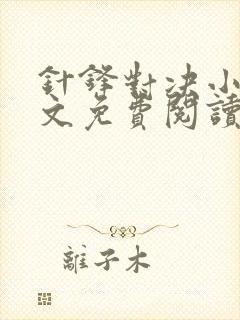 針鋒對決小
文免費閱讀
離子木